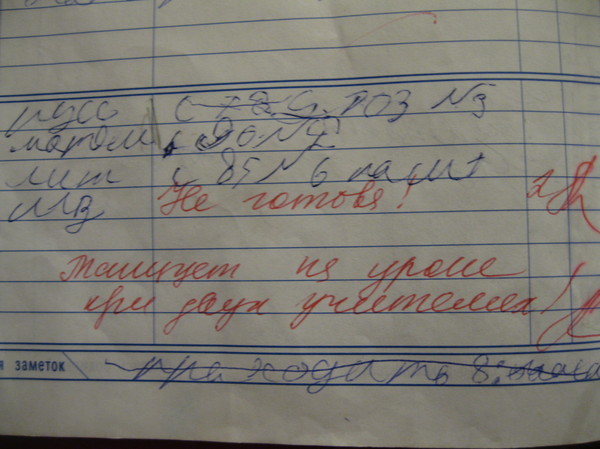 русс с 103 №3
матем с 90 №2
лит с 85 №6 пам
муз Не готов! 2
танцует на уроке
при двух учителях!
я заметок приходить 8: